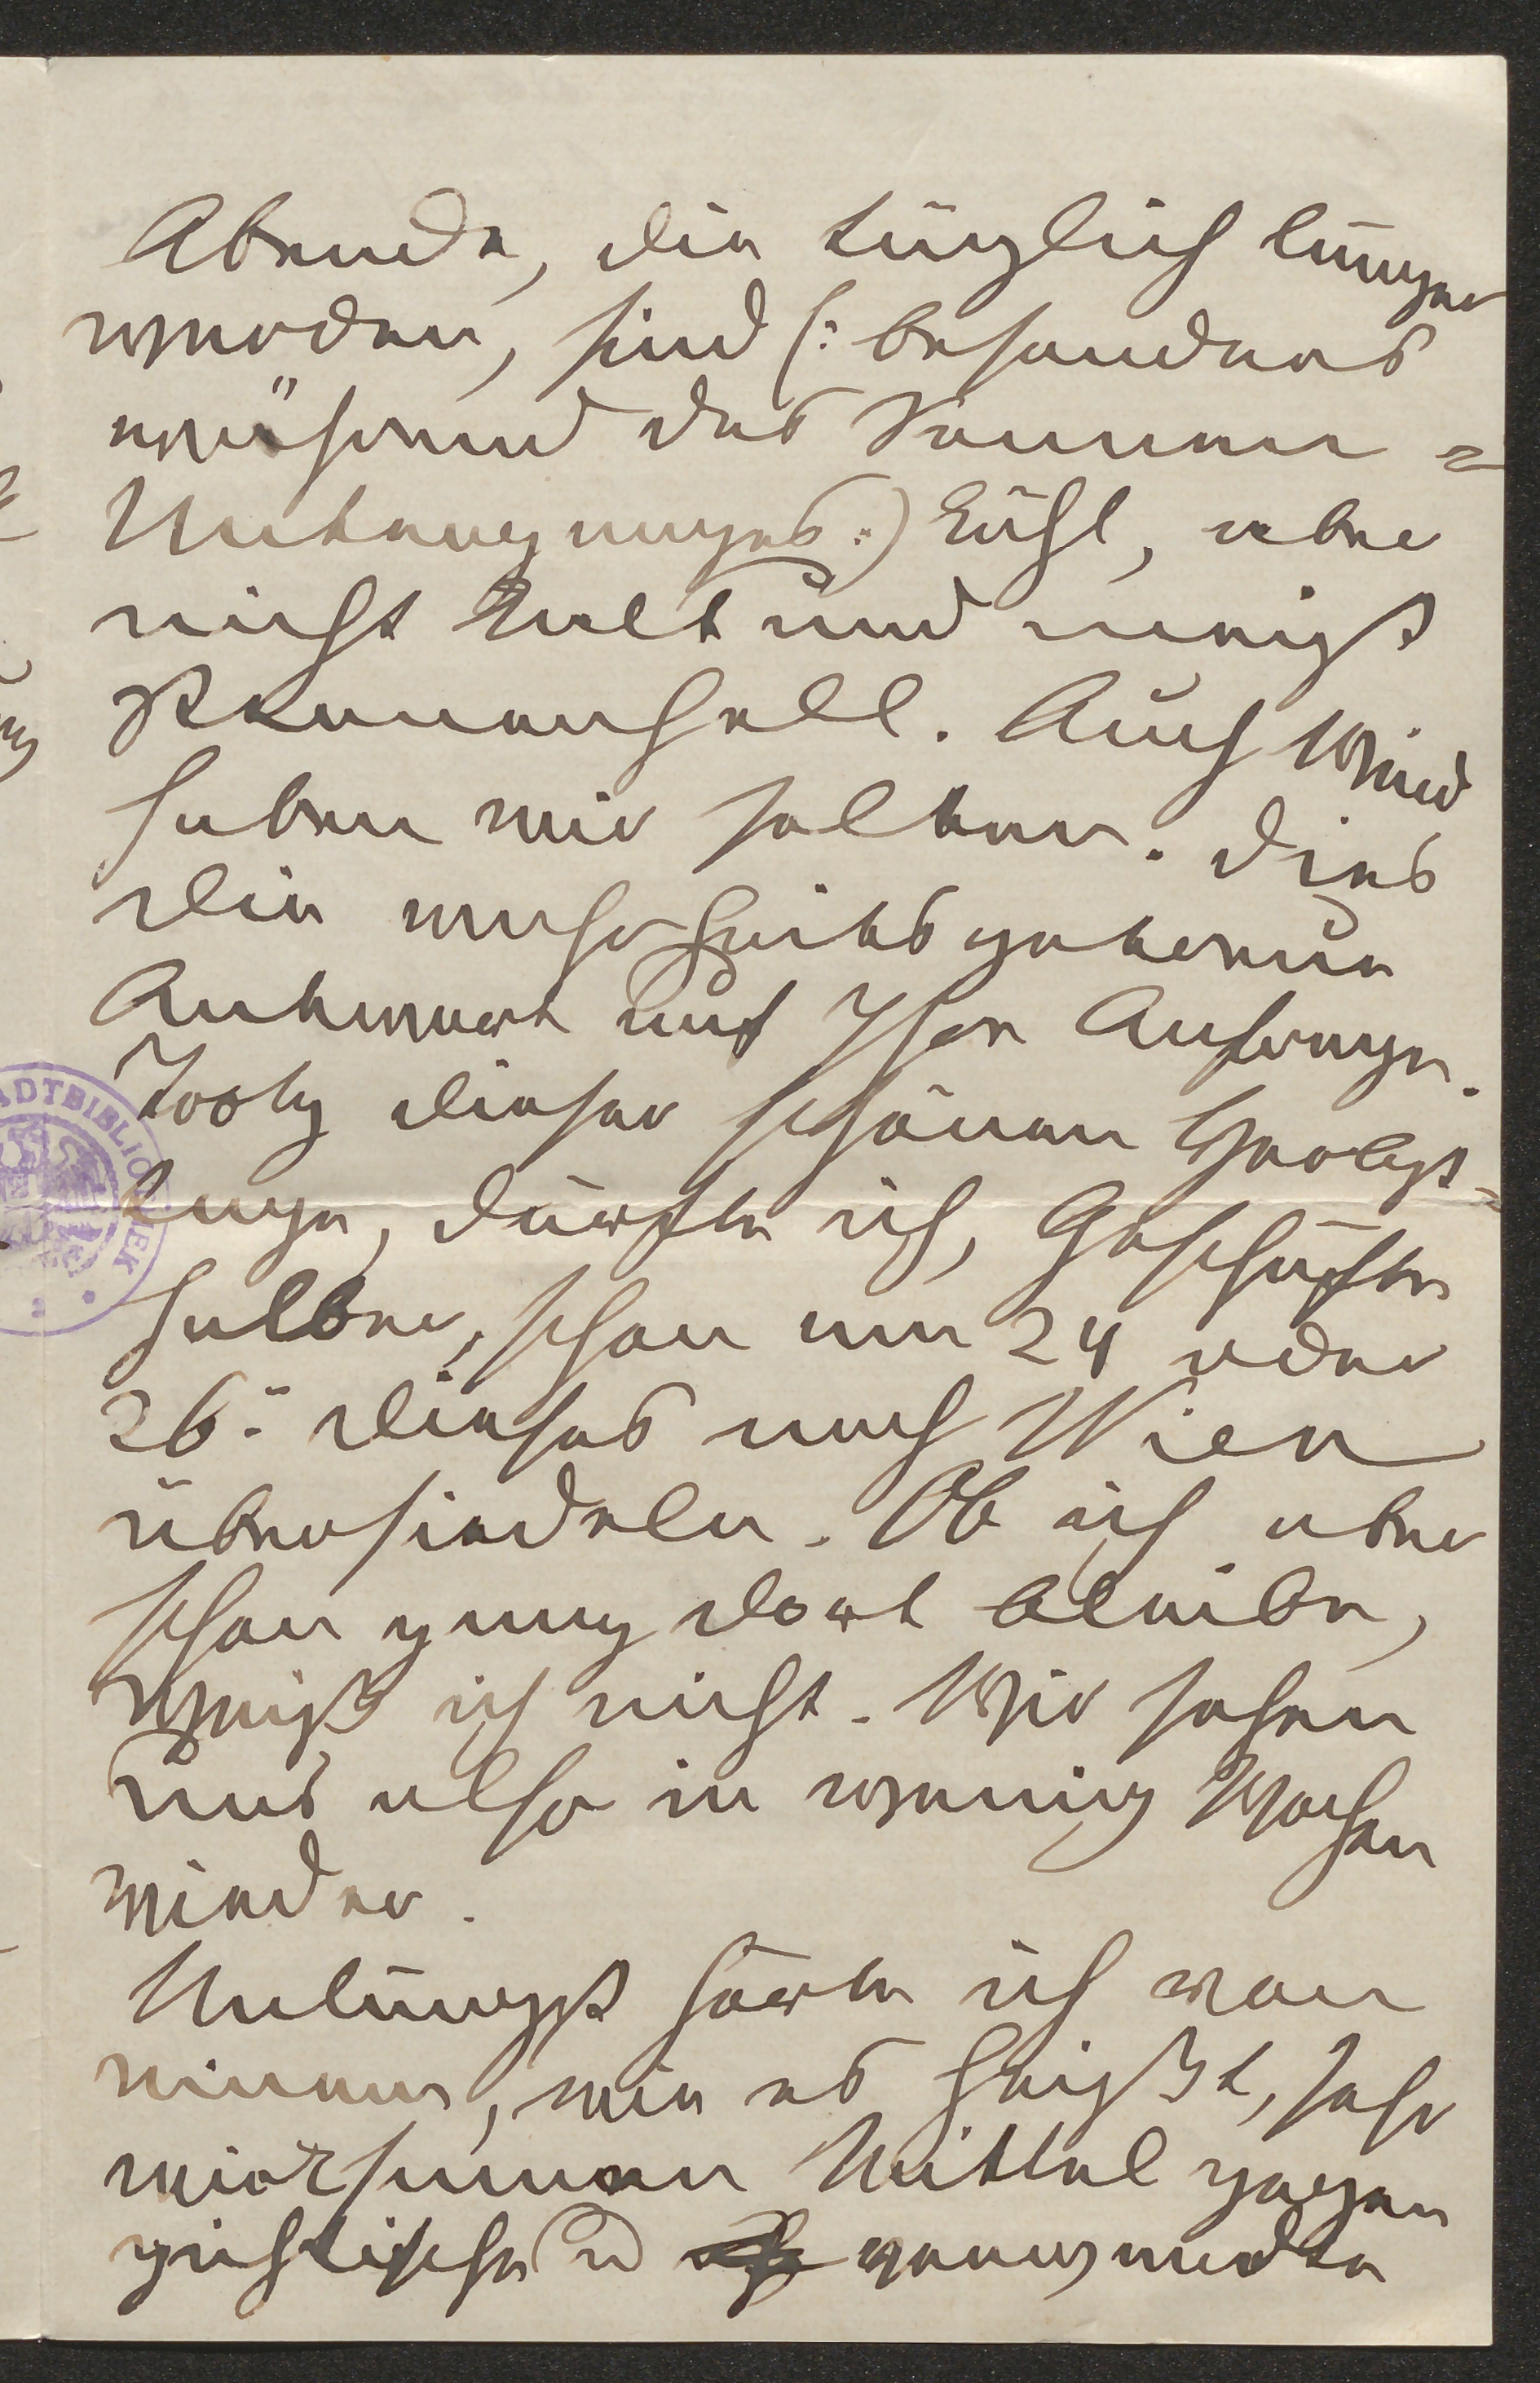 Abende, die täglich länger
werden, sind (: besonders
während des Sonnen =
Unterganges :) kühl, aber
nicht kalt und meist
sternenhell. Auch Wind
haben wir selten. Dies
die wahrheitsgetreue
Antwort auf Ihre Anfrage.
Trotz dieser schönen Herbst=
tage, dürfte ich, Geschäfte
halber, schon am 24 oder
26. dieses nach Wien
übersiedeln. Ob ich aber
schon ganz dort bleibe,
weiß ich nicht. Wir sehen
uns also in wenig Wochen
wieder.
Unlängst hörte ich von
einem, wie es heißt, sehr
wirksamen Mittel gegen
gichtische u verwandte
STADTBIBLIOTHEK